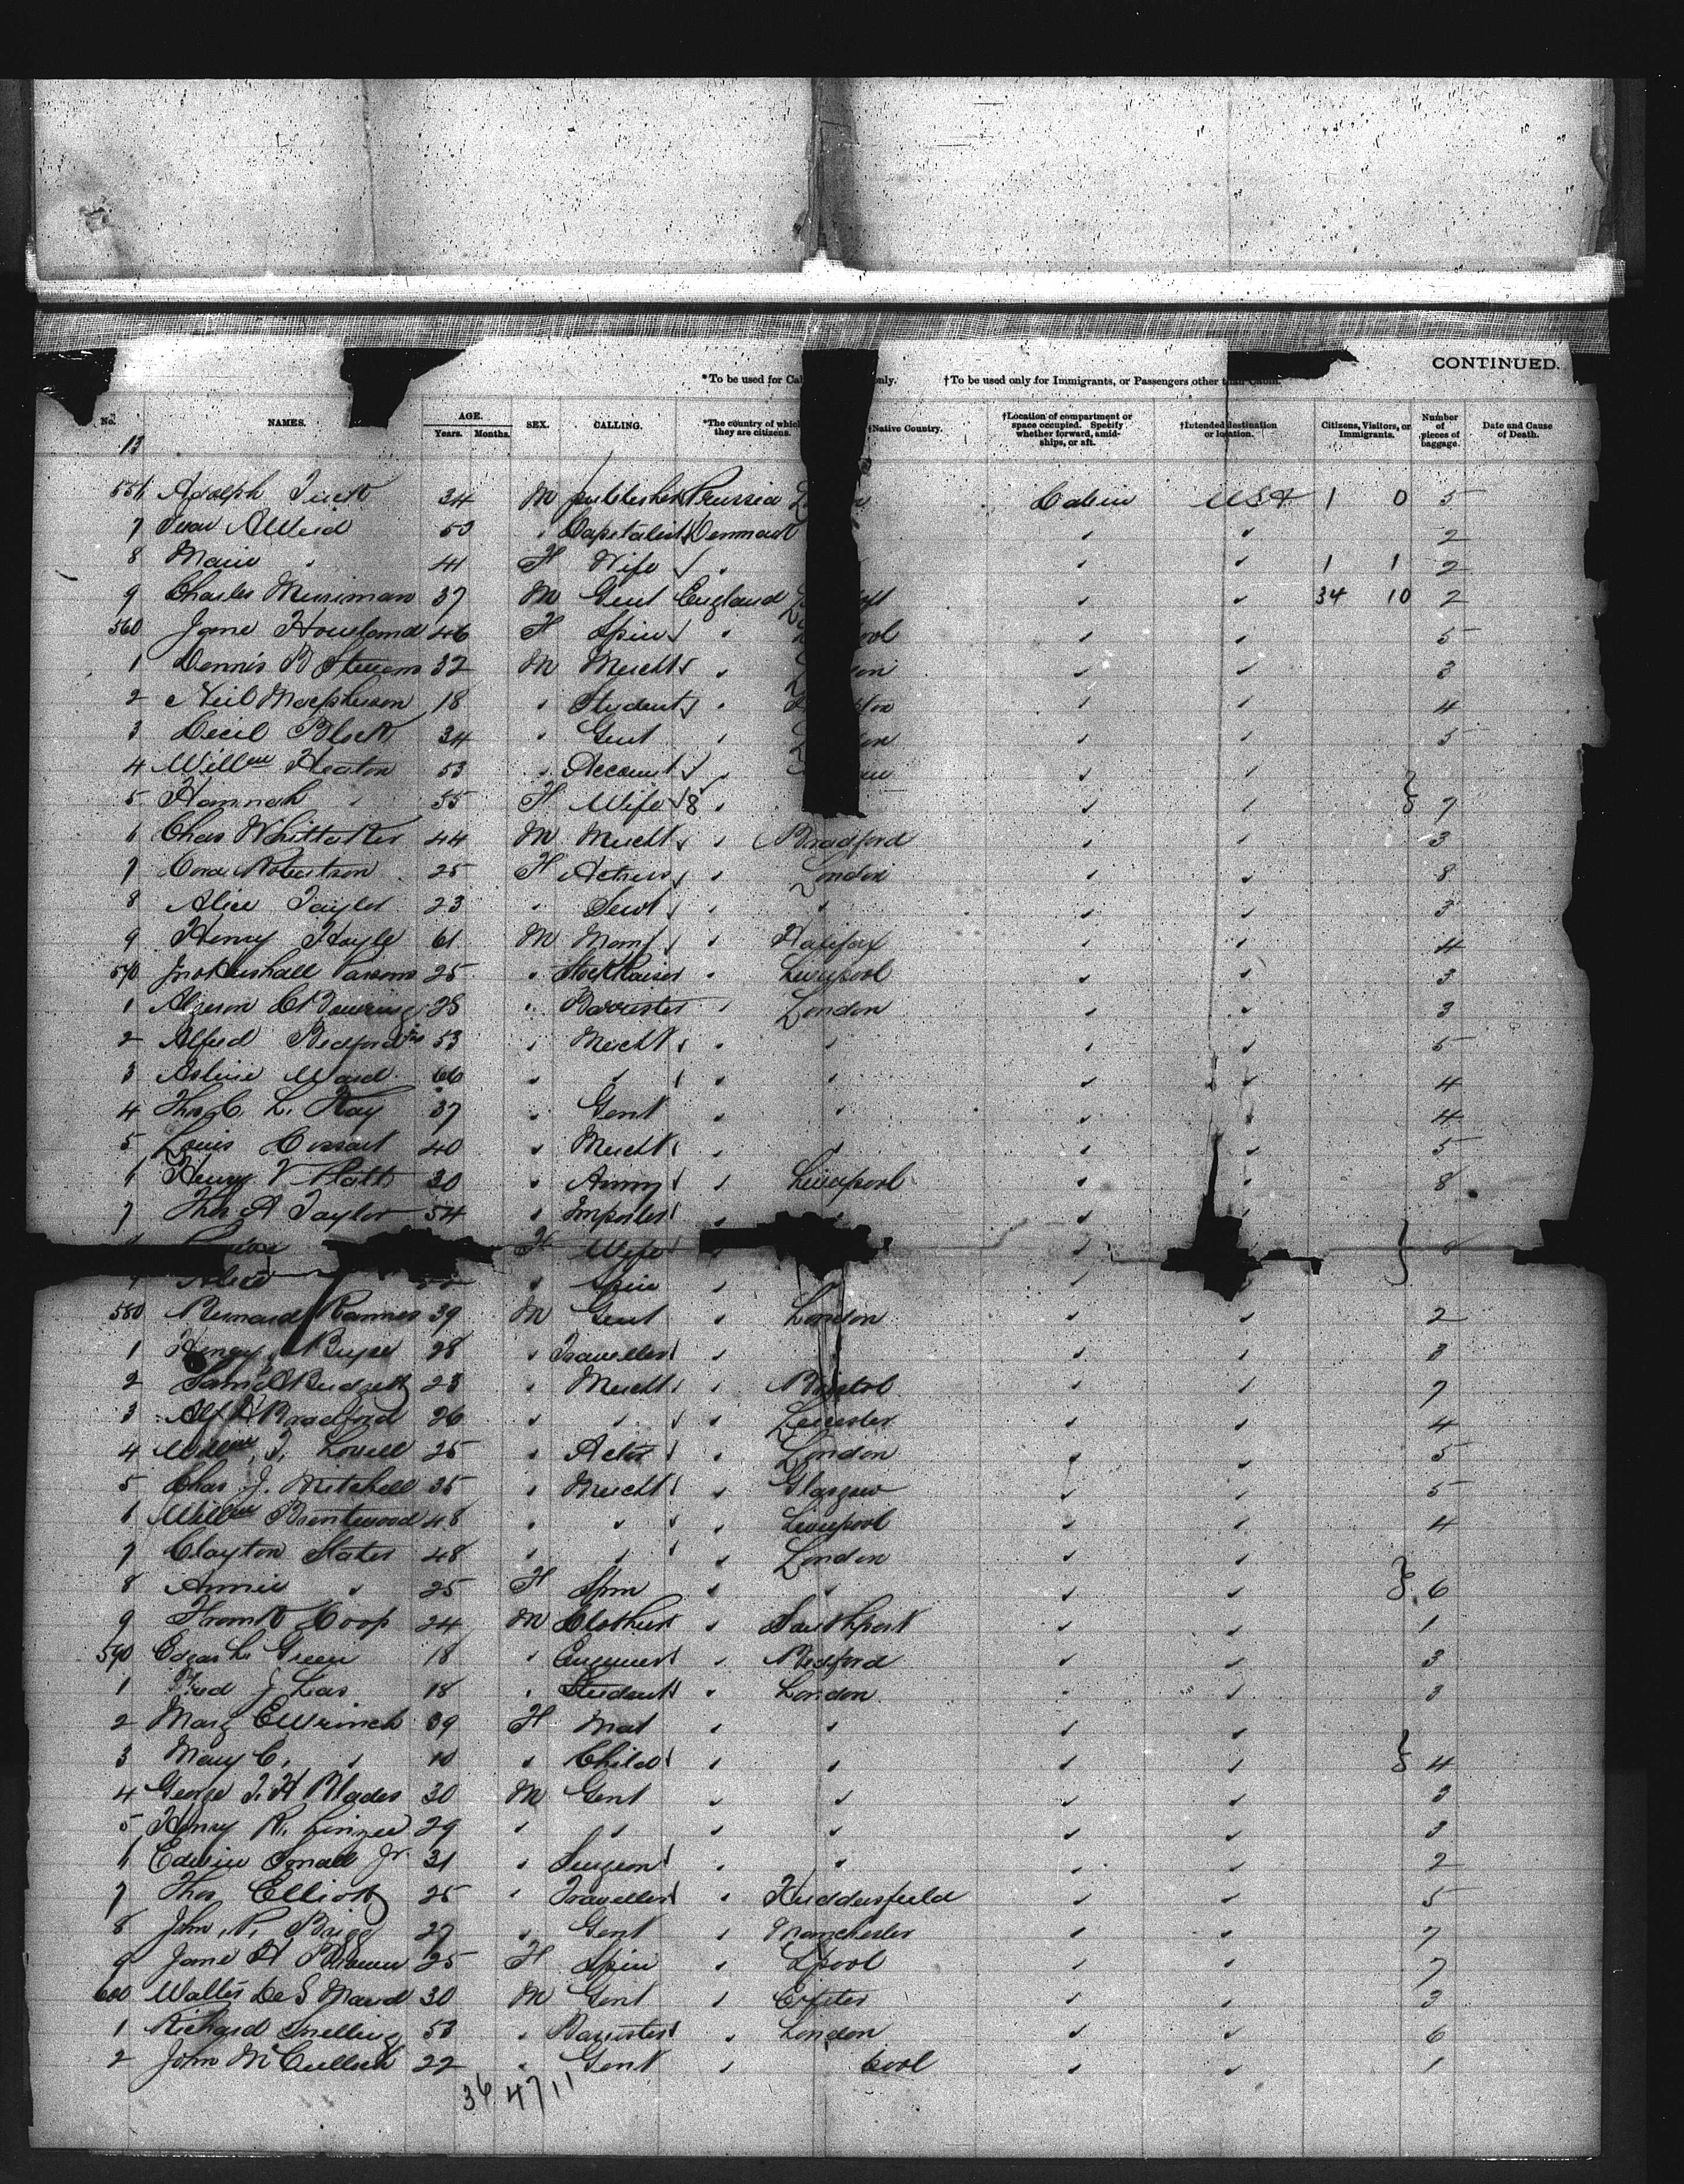 CONTINUED.
*To be used for Cab only. †To be used only for Immigrants, or Passengers other than Cabin.
No. NAMES. AGE. Years. Months. SEX. CALLING. *The country of which they are citizens. †Native Country. †Location of compartment or space occupied. Specify whether forward, amidships, or aft. †Intended destination or location. Citizens, Visitors, or Immigrants. Number of pieces of baggage. Date and Cause of Death.
13
556 Adolph 34 M publisher Prussia Cabin USA 1 0 5
7 50 " Capitalist Denmark " " 2
8 Marie " 41 F Wife " " " 1 1 2
9 Charles Merriman 37 M Gent England " " 34 10 2
560 Jane Howland 46 F Spin " ool " " 5
1 Dennis B Stevens 32 M Mercht " on " " 3
2 Neil Macpherson 18 " Student " " " 4
3 Cecil Black 34 " Gent " on " " 5
4 Willm Heaton 53 " Account " " "
5 Hannah " 55 F Wife 8 " " " 7
6 Chas Whittaker 44 M Mercht " Bradford " " 3
7 Cora Robertson 25 F Actress " London " " 8
8 Alice Taylor 23 " Servt " " " " 3
9 Henry Hoyle 61 M Manf " Halifax " " 4
570 Jno Hershall Parsons 25 " Stock Raiser " Liverpool " " 3
1 C Bowring 28 " Barrister " London " " 3
2 Alfred Bedford 53 " Mercht " " " " 5
3 Ward 66 " " " " " " 4
4 Thos C. L. Kay 37 " Gent " " " " 4
5 Louis Cossart 40 " Mercht " " " " 5
6 Henry V Platt 30 " Army " Liverpool " " 8
7 Thos A Taylor 54 " Importer " " "
F Wife " 8
9 Alice " Spin " "
580 Bernard Rammer 39 M Gent " London " " 2
1 Henry 28 " Traveller " " " 3
2 Saml Budgett 23 " Mercht " Bristol " " 7
3 Alf H Bradford 26 " " " Leicester " " 4
4 Willm T. Lovell 25 " Actor " London " " 5
5 Chas J. Mitchell 35 " Mercht " Glasgow " " 5
6 Willm Brentwood 48 " " " Liverpool " " 4
7 Clayton Slater 48 " " " London " "
8 Annie " 25 F Spin " " " " 6
9 Frank Coop 24 M Clothier " Southport " " 1
590 Edgar L. Green 18 " Engineer " Bedford " " 3
1 Fred J Lias 18 " Student " London " " 3
2 Mary E Wrinch 39 F Mat " " " "
3 Mary C. " 10 " Child " " " " 4
4 George T. H Blades 30 M Gent " " " " 3
5 Henry R. Linzee 29 " " " " " " 3
6 Edwin Small Jr. 31 " Surgeon " " " " 2
7 Thos Elliott 25 " Traveller " Huddersfield " " 5
8 John R. Brigg 27 " Gent " Manchester " " 7
9 Jane H Brown 25 F Spin " Lpool " " 7
600 Walter De S Maud 30 M Gent " Exeter " " 3
1 Richard Snelling 53 " Barrister " London " " 6
2 John McCulloch 22 " Gent " pool " " 1
36 47 11